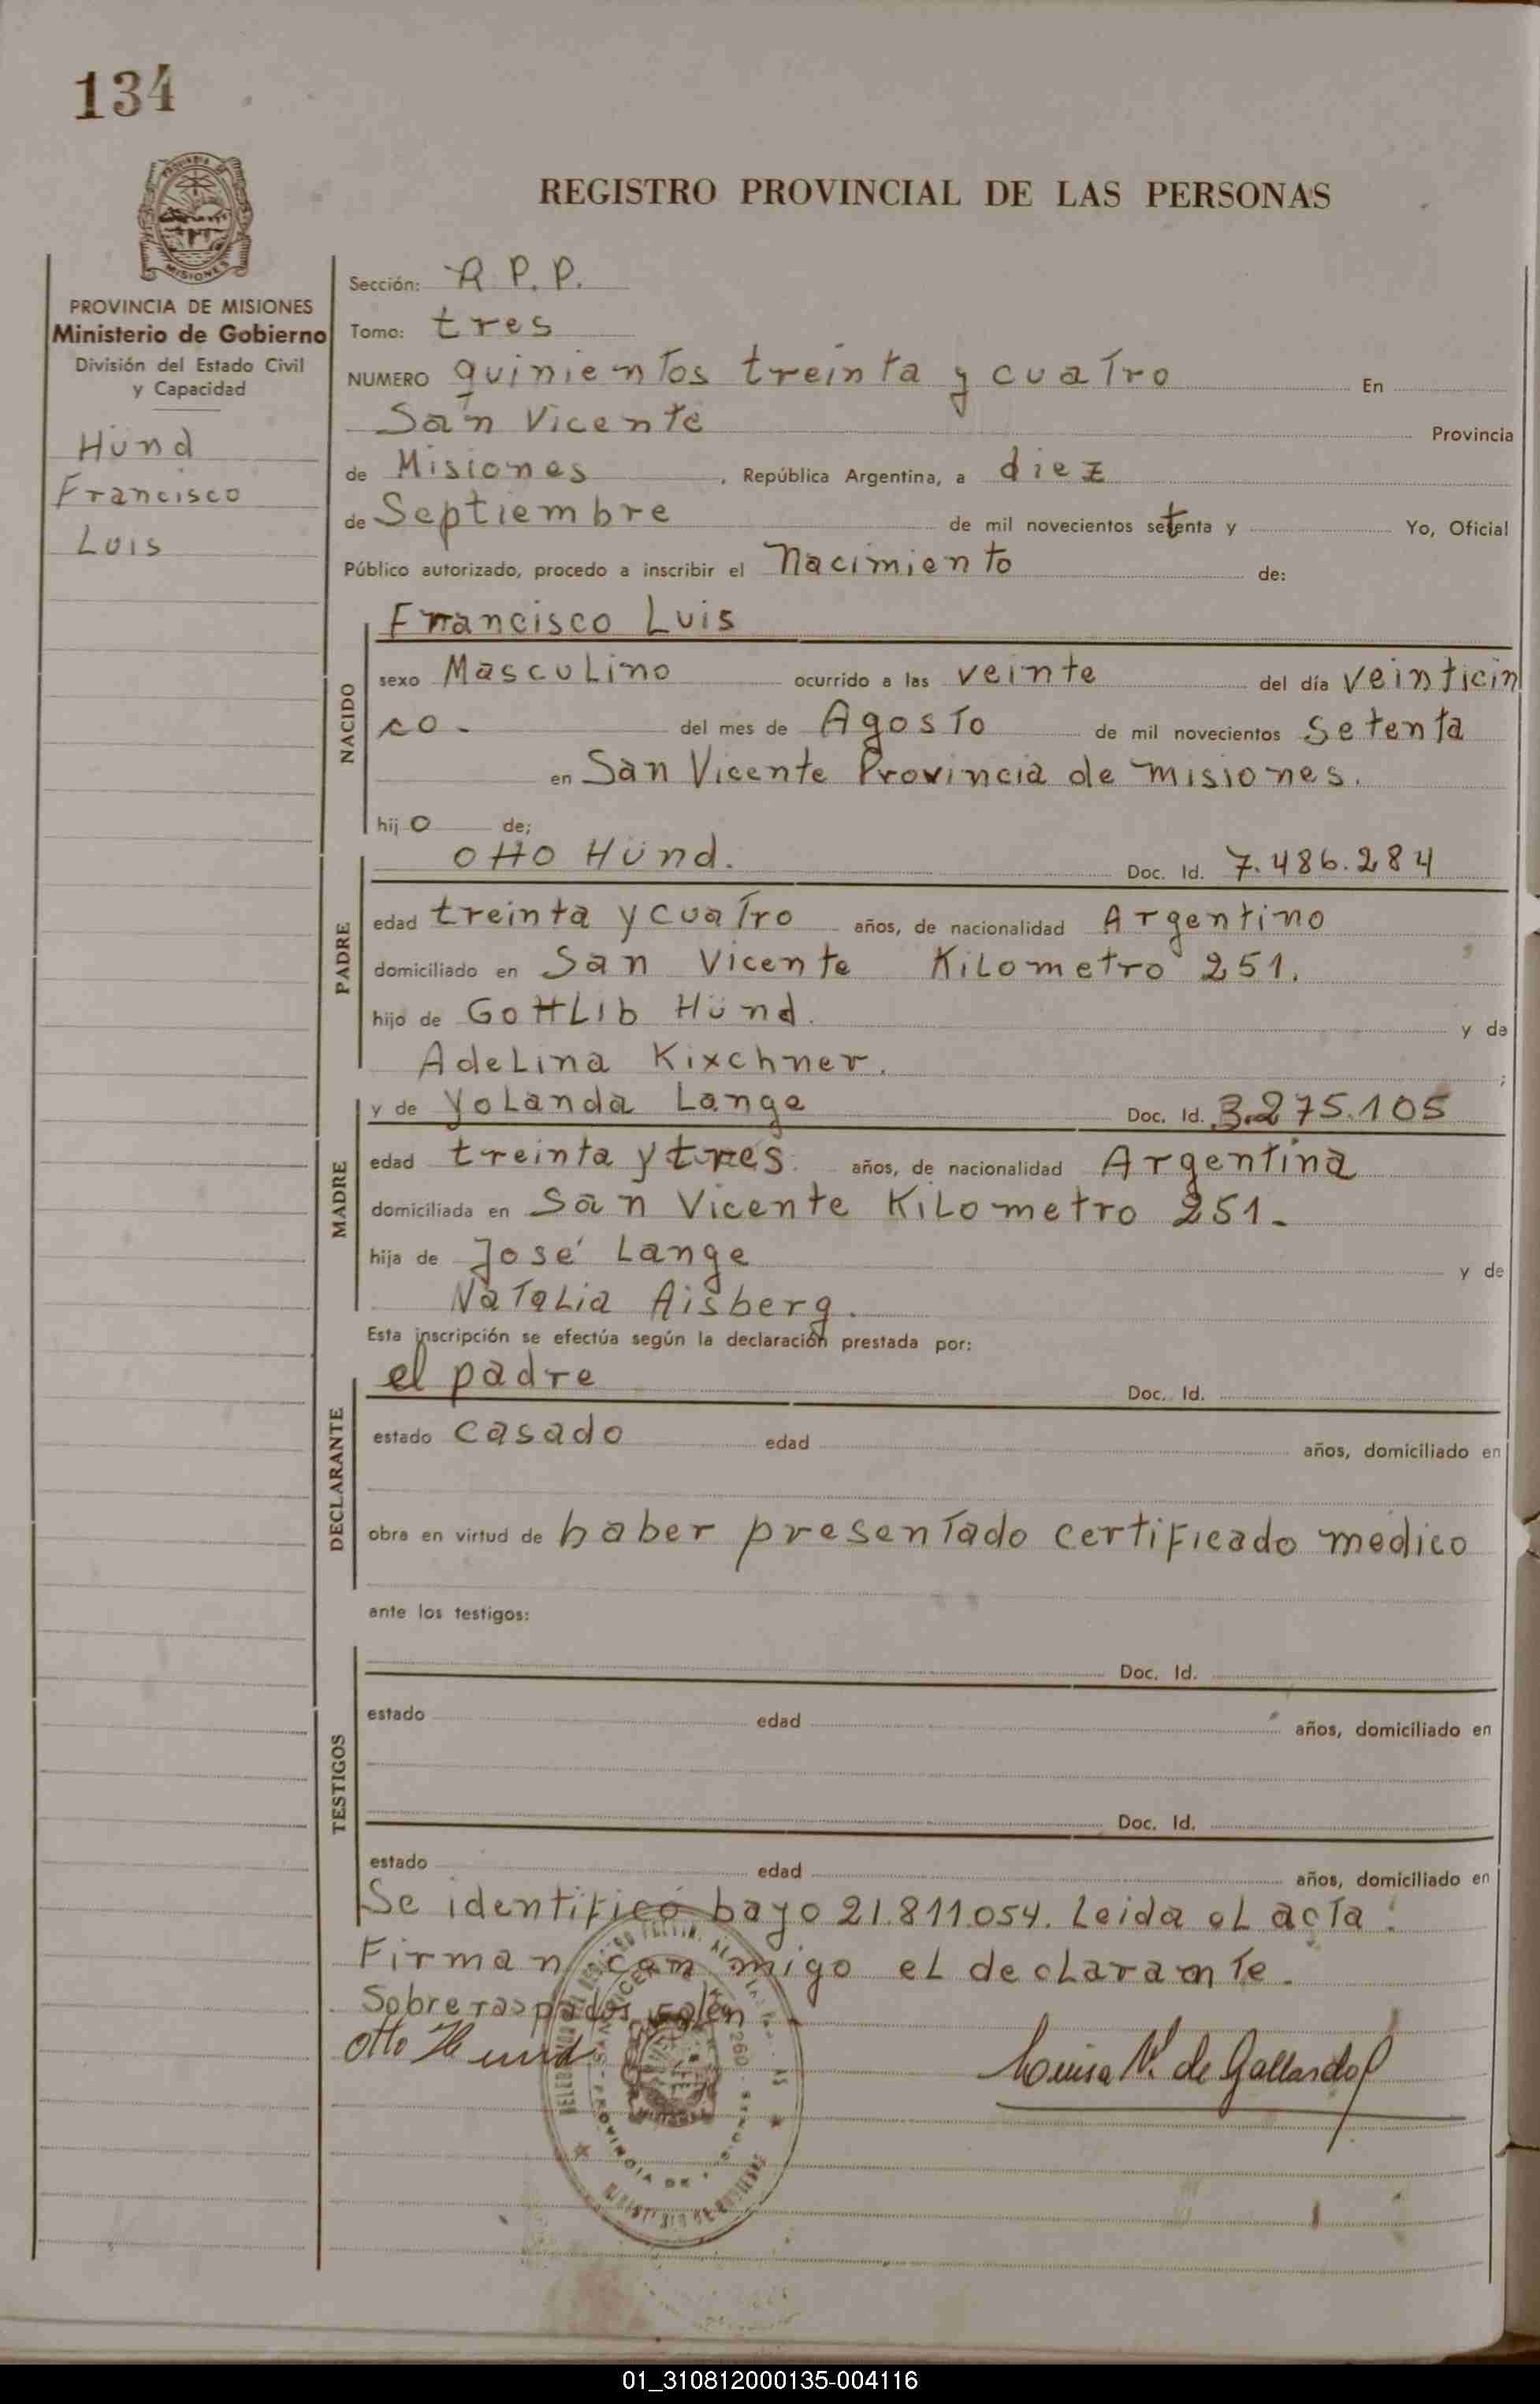 134
REGISTRO PROVINCIAL DE LAS PERSONAS
MISIONES
PROVINCIA DE MISIONES
Ministerio de Gobierno
División del Estado Civil
y Capacidad
Hünd
Francisco
Luis
Sección: R P. P.
Tomo: tres
NUMERO quinientos treinta y cuatro En
San Vicente Provincia
de Misiones, República Argentina, a diez
de Septiembre de mil novecientos setenta y Yo, Oficial
Público autorizado, procedo a inscribir el Nacimiento de:
NACIDO
Francisco Luis
sexo Masculino ocurrido a las veinte del día veinticin
co - del mes de Agosto de mil novecientos setenta
en San Vicente Provincia de misiones.
hijo de;
PADRE
Otto Hünd. Doc. Id. 7.486.284
edad treinta y cuatro años, de nacionalidad Argentino
domiciliado en San Vicente Kilometro 251.
hijo de Gottlib Hünd. y de
Adelina Kixchner. ;
MADRE
y de Yolanda Lange Doc. Id. 3.275.105
edad treinta y tres. años, de nacionalidad Argentina
domiciliada en San Vicente Kilometro 251-
hija de José Lange y de
Natalia Aisberg.
Esta inscripción se efectúa según la declaración prestada por:
DECLARANTE
el padre Doc. Id.
estado casado edad años, domiciliado en
obra en virtud de haber presentado certificado medico
ante los testigos:
TESTIGOS
Doc. Id.
estado edad años, domiciliado en
Doc. Id.
estado edad años, domiciliado en
Se identificó bayo 21.811.054. Leida el acta.
Firman con migo el declarante.
Sobre raspados valen
Otto Hund
Luisa N. de Gallardo
01_310812000135-004116